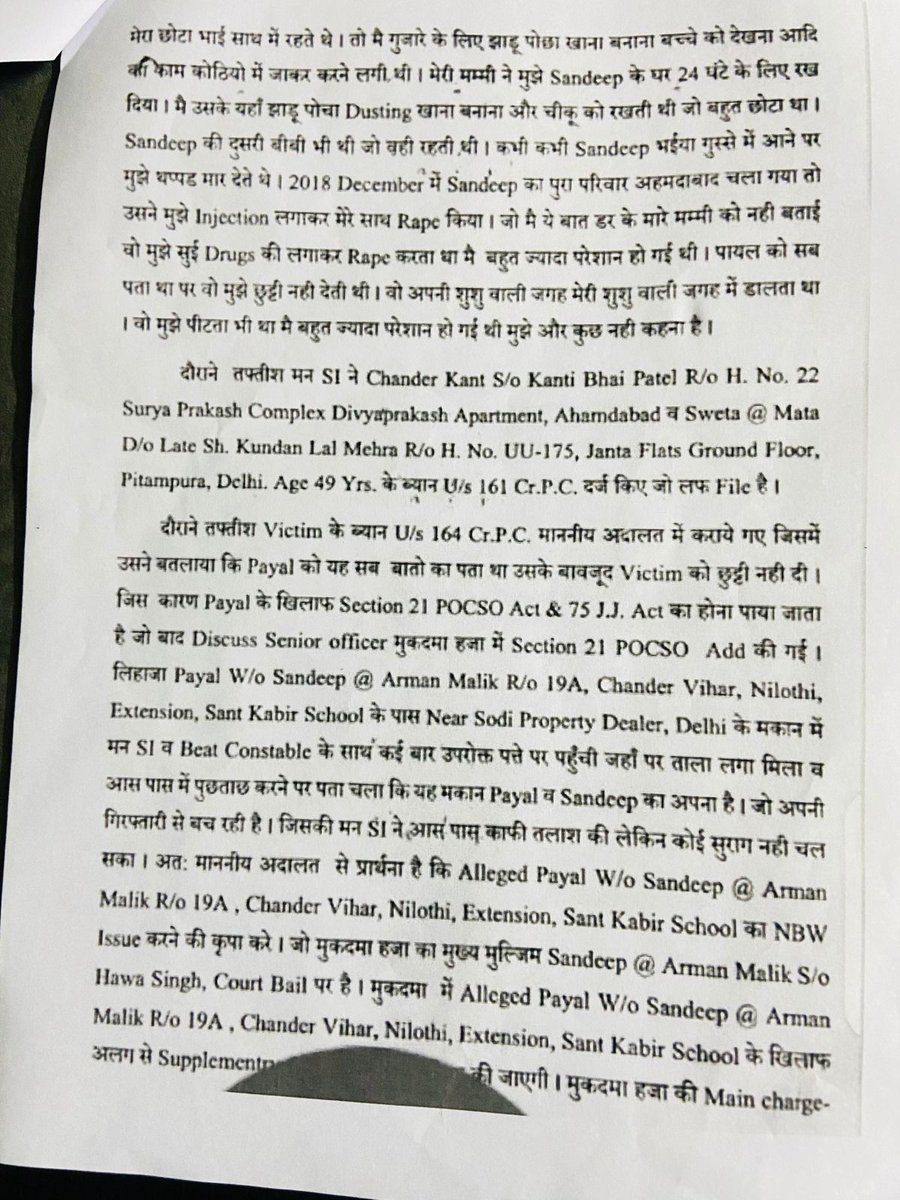 मेरा छोटा भाई साथ में रहते थे । तो मै गुजारे के लिए झाडू पोछा खाना बनाना बच्चे को देखना आदि
की काम कोठियो में जाकर करने लगी थी । मेरी मम्मी ने मुझे Sandeep के घर 24 घंटे के लिए रख
दिया । मै उसके यहाँ झाडू पोचा Dusting खाना बनाना और चीकू को रखती थी जो बहुत छोटा था ।
Sandeep की दुसरी बीबी भी थी जो वही रहती थी । कभी कभी Sandeep भईया गुस्से में आने पर
मुझे थप्पड मार देते थे । 2018 December में Sandeep का पुरा परिवार अहमदाबाद चला गया तो
उसने मुझे Injection लगाकर मेरे साथ Rape किया । जो मै ये बात डर के मारे मम्मी को नही बताई
वो मुझे सुई Drugs की लगाकर Rape करता था मै बहुत ज्यादा परेशान हो गई थी । पायल को सब
पता था पर वो मुझे छुट्टी नही देती थी । वो अपनी शुशु वाली जगह मेरी शुशु वाली जगह में डालता था
। वो मुझे पीटता भी था मै बहुत ज्यादा परेशान हो गई थी मुझे और कुछ नही कहना है ।
दौराने तफ्तीश मन SI ने Chander Kant S/o Kanti Bhai Patel R/o H. No. 22
Surya Prakash Complex Divyaprakash Apartment, Ahamdabad व Sweta @ Mata
D/o Late Sh. Kundan Lal Mehra R/o H. No. UU-175, Janta Flats Ground Floor,
Pitampura, Delhi. Age 49 Yrs. के ब्यान U/s 161 Cr.P.C. दर्ज किए जो लफ File है ।
दौराने तफ्तीश Victim के ब्यान U/s 164 Cr.P.C. माननीय अदालत में कराये गए जिसमें
उसने बतलाया कि Payal को यह सब बातो का पता था उसके बावजूद Victim को छुट्टी नही दी ।
जिस कारण Payal के खिलाफ Section 21 POCSO Act & 75 J.J. Act का होना पाया जाता
है जो बाद Discuss Senior officer मुकदमा हजा में Section 21 POCSO Add की गई ।
लिहाजा Payal W/o Sandeep @ Arman Malik R/o 19A, Chander Vihar, Nilothi,
Extension, Sant Kabir School के पास Near Sodi Property Dealer, Delhi के मकान में
मन SI व Beat Constable के साथ कई बार उपरोक्त पत्ते पर पहुँची जहाँ पर ताला लगा मिला व
आस पास में पुछताछ करने पर पता चला कि यह मकान Payal व Sandeep का अपना है । जो अपनी
गिरफ्तारी से बच रही है । जिसकी मन SI ने आस पास काफी तलाश की लेकिन कोई सुराग नही चल
सका । अत: माननीय अदालत से प्रार्थना है कि Alleged Payal W/o Sandeep @ Arman
Malik R/o 19A , Chander Vihar, Nilothi, Extension, Sant Kabir School का NBW
Issue करने की कृपा करे । जो मुकदमा हजा का मुख्य मुल्जिम Sandeep @ Arman Malik S/o
Hawa Singh, Court Bail पर है । मुकदमा में Alleged Payal W/o Sandeep @ Arman
Malik R/o 19A , Chander Vihar, Nilothi, Extension, Sant Kabir School के खिलाफ
अलग से Supplementr की जाएगी । मुकदमा हजा की Main charge-